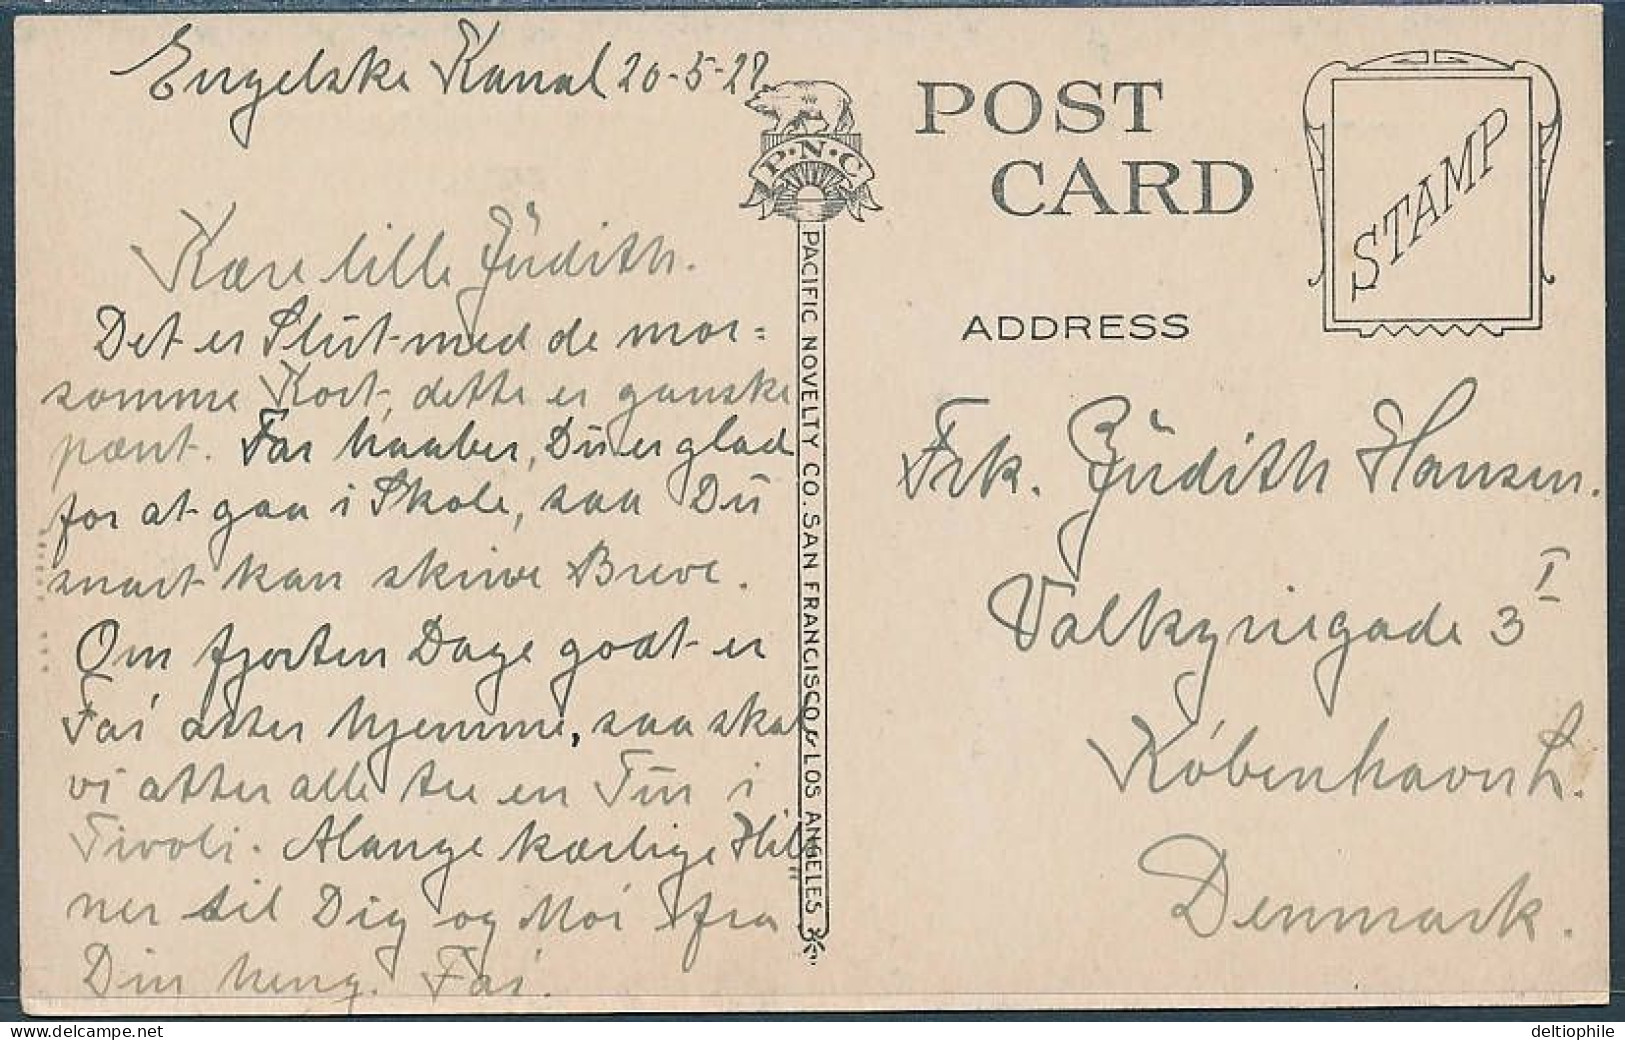 Engelske Kanal 20-5-27
Kære lille Jüdith.
Det er Slut med de mor=
somme Kort, dette er ganske
pænt. Far haaber, Dü er glad
for at gaa i Skole, saa Dü
snart kan skrive Breve.
Om fjorten Dage godt er
Far atter hjemme, saa skal
vi atter alle tre en Tür i
Tivoli. Mange kærlige Hils"
ner til Dig og Mor fra
Din heng. Far.
P·N·C
PACIFIC NOVELTY CO. SAN FRANCISCO & LOS ANGELES
POST
CARD
STAMP
ADDRESS
Frk. Jüdith Hansen.
Valkyriegade 3 I
København L.
Denmark.
deltiophile